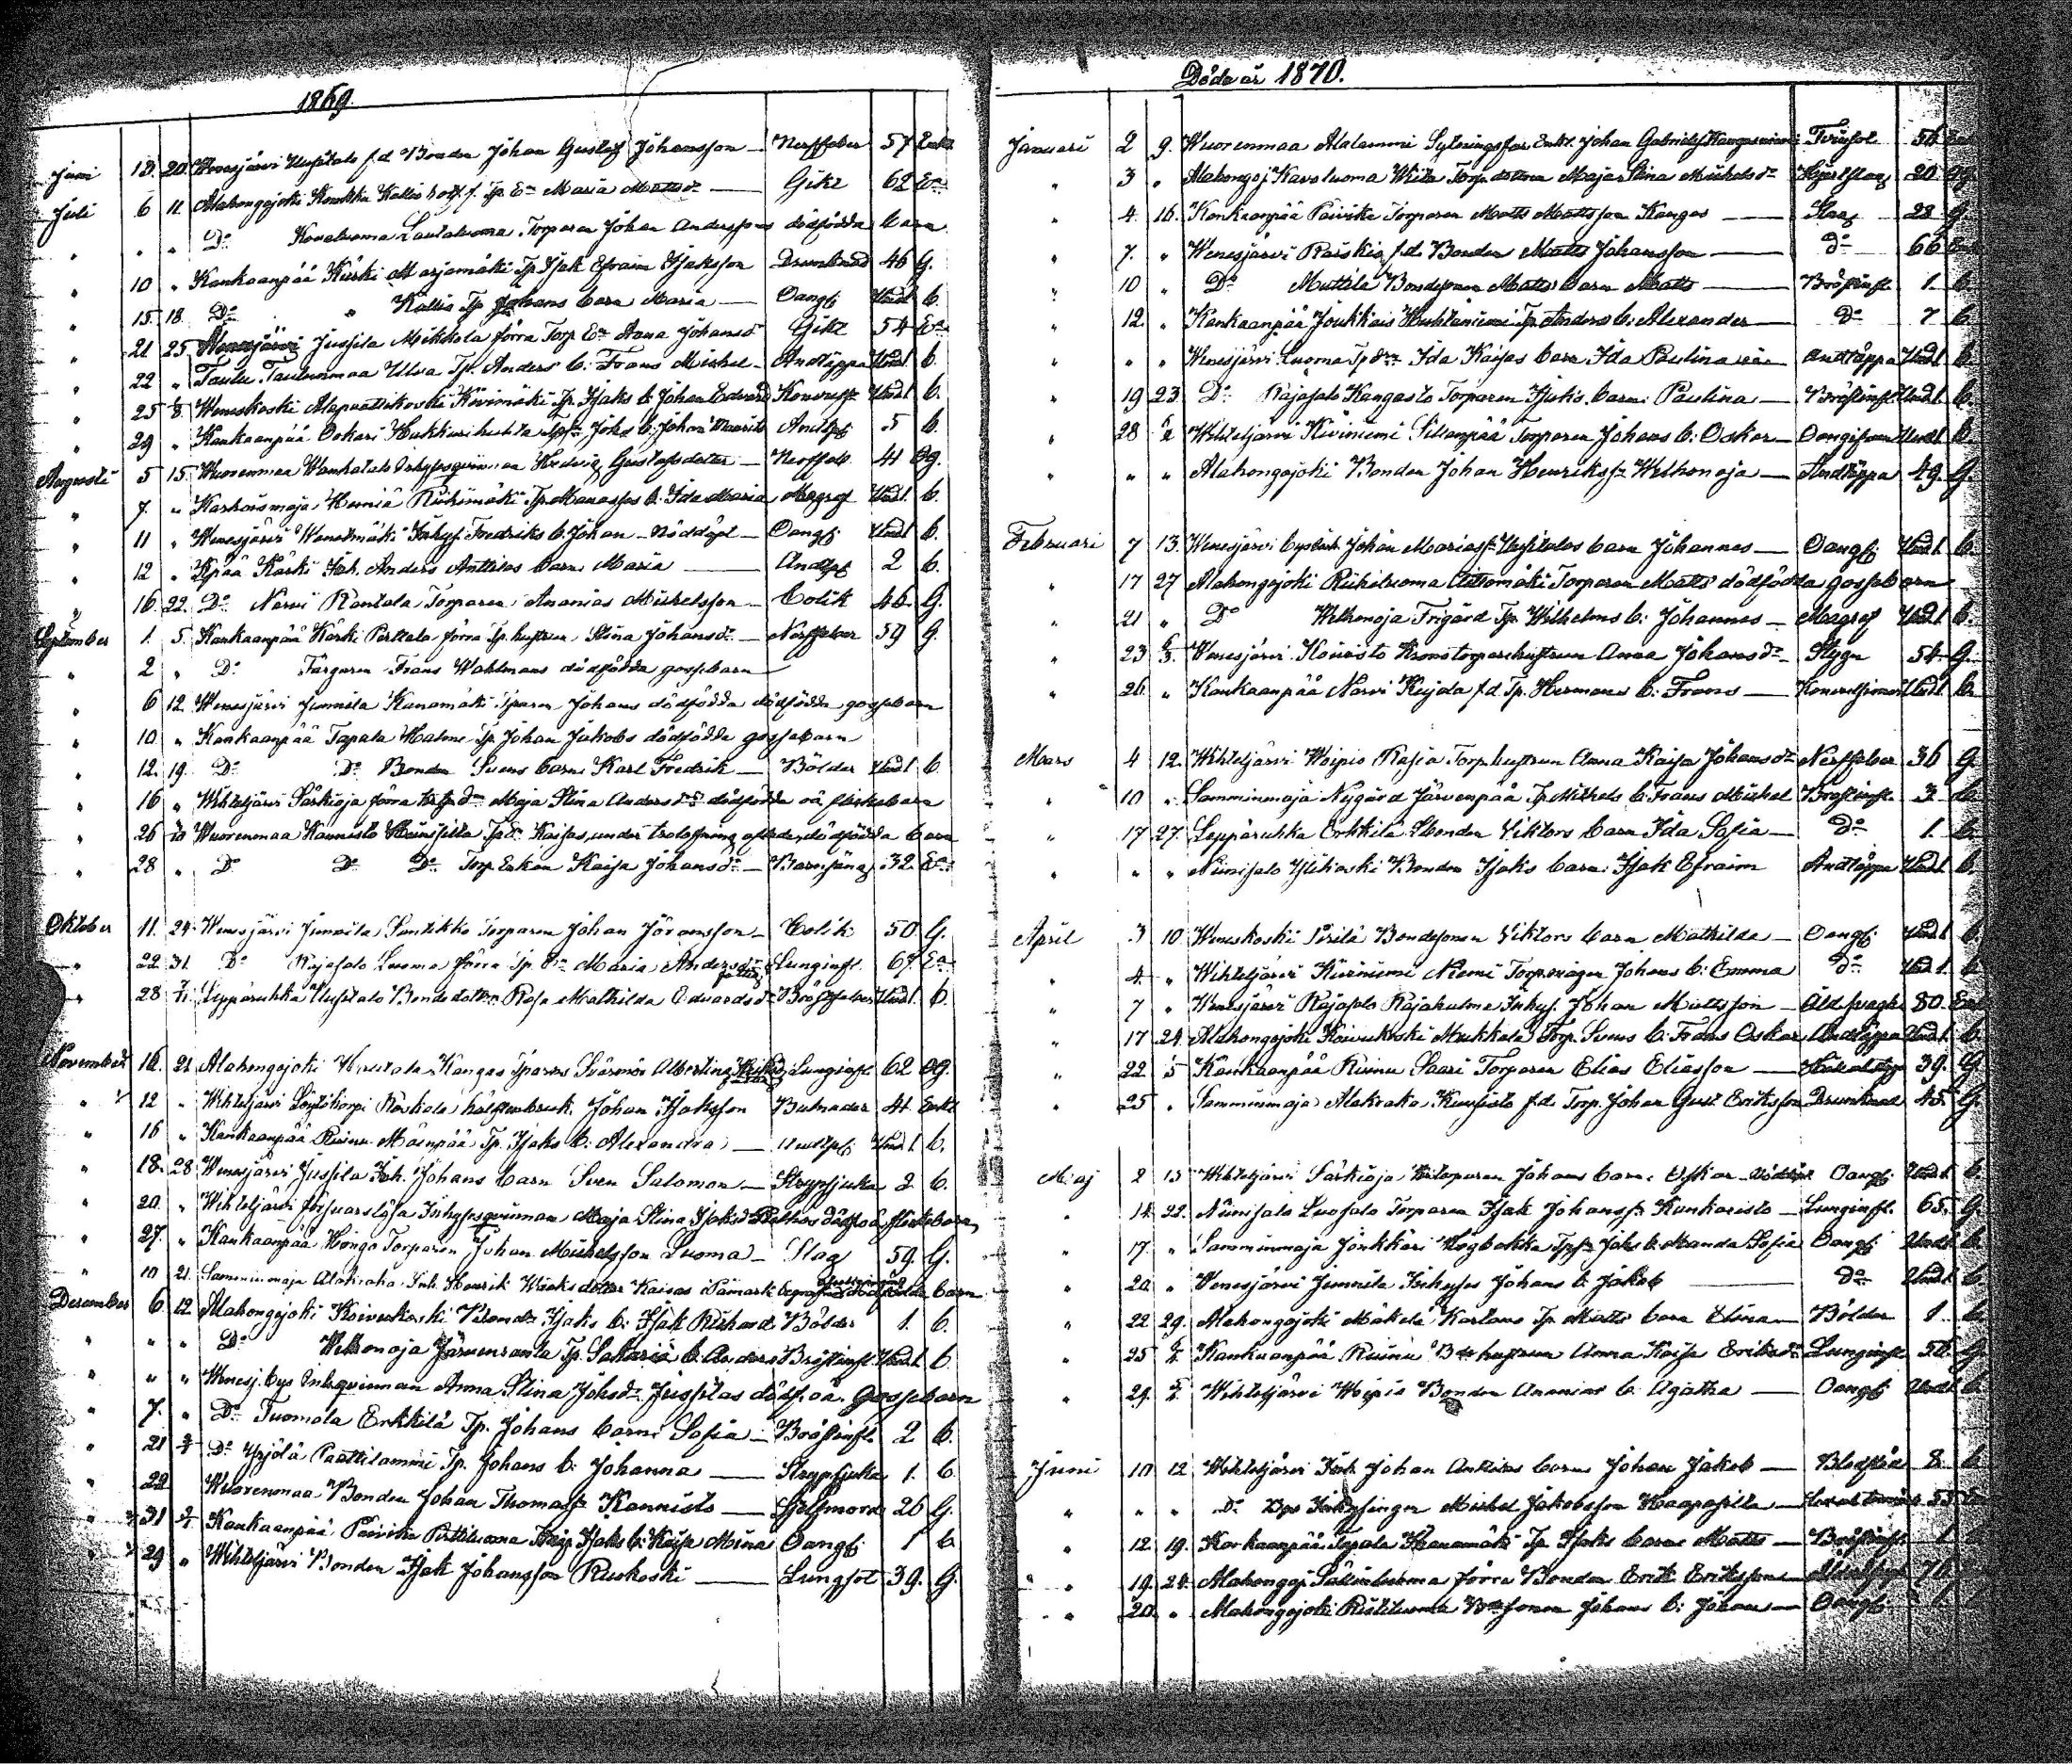 1869.
Juni 13. 20. Wenesjärvi Uusitalo f.d. Bonden Johan Gustaf Johansson — Nerffeber 57 Enkl
Juli 6 11 Alahongojoki Koukku Kallio f. Tp. Ea Maria Mattsdr — Gikt 62 Ea
" " " Do Kovaluoma Lautaluoma Torparen Johan Anderssons dödfödda barn
" 10 " Kankaanpää Kärki Marjamäki Tp. Isak Efraim Isaksson Drunknad 46 G.
" 15 18 Do " Kallio Tp Johans barn Maria — Oangf. Und. 1 b.
" 21 25 Wenesjärvi Jussila Mikkola förra Torp. Ea Anna Johansdr Gikt 54 Ea
" 22 " Taulu Taulunmaa Ulva Tp. Anders b. Frans Mickel — Andtäppa Und. 1 b.
" 25 1/8 Weneskoski Alapaattikoski Kivimäki Tp. Isaks b. Johan Edvard Konvuls. Und. 1 b.
" 29 " Kankaanpää Ockari Hukkurihuhta Johs b. Johan Mauritz Andtpt 5 b.
Augusti 5 15 Wuorenmaa Wanhatalo Inhysesqvinnan Hedvig Gustafsdotter — Nerffeb. 41 Og.
" 7 " Karhoismaja Hermiä Riihimäki Tp. Manasses b. Ida Maria Magref Und. 1 b.
" 11 " Wenesjärvi Wenesmäki Inhys. Fredriks b. Johan — Nöddöpt — Oangf. Und. 1 b.
" 12 " Kpää Kärki Inh. Anders Anttilas barn Maria — Andtpt 2 b.
" 16. 22. Do Narvi Rantala Torparen Ananias Mickelsson — Colik 46. G.
September 1. 5. Kankaanpää Kärki Perttala förra Tp. hustrun Stina Johansdr — Nerffeber 59 G
" 2 " Do Färgaren Frans Wahlmans dödfödda gossebarn
" 6 12 Wenesjärvi Junnila Kanamäki Tparen Johans dödfödda dödfödda gossebarn
" 10 " Kankaanpää Tapala Halme Tp. Johan Jakobs dödfödda gossebarn
" 12. 19. Do Do Bonden Svens barn Karl Fredrik — Bölder Und. 1 b.
" 16 " Wihteljärvi Särkioja förra Maja Stina Andersdrs dödfödda oä flickebarn
" 26 Wuorenmaa Kannisto Kaisas, under trolofning aflade, dödfödda barn
" 28 " Do Do Do Torp. Enkan Kaisa Johansdr — Barnsäng 32. Ea
Oktober 11. 24. Wenesjärvi Junnila Santikko Torparen Johan Göransson — Colik 50 G.
" 22 31. Do Rajasalo Luoma förra Tp. Ea Maria Andersdr Lunginfl. 67. Ea
" 28 7/11 Leppäruhka Uusitalo Bondedottern Rosa Mathilda Edvardsdr Bröstfeber Und. 1 b.
November 16. 21 Alahongojoki Kangas Tparens Svärmor Albertina Lunginfl 62 Og.
" 12 " Wihteljärvi hälftenbruk. Johan Isaksson Bulnader 41 Enkl
" 16 " Kankaanpää Ruinu Mäenpää Tp. Isaks b. Alexandra — Andtpt. Und. 1 b.
" 18. 28 Wenesjärvi Jussila Inh. Johans barn Sven Salomon — Strypsjuka 2 b.
" 20. " Wihteljärvi försvarslösa Inhysesqvinnan Maja Stina Isaksdr dödf. oä flickebarn
" 27. " Kankaanpää Hongo Torparen Johan Mickelsson Luoma — Slag 59. G.
" 10 21. Samminmaja Alakraka Inh. Henrik Kaisas i Påmark begrafna dödfödda barn
December 6. 12 Alahongojoki Koivukoski Isaks b. Isak Rickard Bölder 1. b.
" " " Do Welhonoja Järvenranta Tp. Sakariä b. Anders Bröstinfl. Und. 1 b
" " " Wenesj. bys Inh. qvinnan Anna Stina Johsdr Jussilas dödf. oä. Gossebarn
" 7. " Do Tuomola Erkkilä Tp. Johans barn Sofia — Bröstinfl. 2 b.
" 21 2/1 Do Yrjölä Paattilammi Tp. Johans b. Johanna — Strypsjuka 1. b
" 22 Wuorenmaa Bonden Johan Thomass. Kannisto — Sjelfmord 26 G.
" 31 2/1 Kankaanpää Päiviko Perttiluoma Isaks b. Kaisa Mina Oangf. 1 b
" 29 " Wihteljärvi Bonden Isak Johansson Ruokoski — Lungsot 39. G.
Döda år 1870.
Januari 2 9. Wuorenmaa Alalammi Sytningsfar Enkl. Johan Gabrielss. Tvinsot 56 Enkl
" 3 " Alahongoj. Kavoluoma Torp. dottern Maja Stina Mickelsdr Hjertslag 20 Og.
" 4. 16. Kankaanpää Päivike Torparen Matts Mattsson Kangas — Slag 28 G.
" 7. " Wenesjärvi Raiskio f.d. Bonden Matts Johansson — Do 66 Enkl
" 10 " Do Mattila Bondesonen Matts barn Matts — Bröstinfl. 1. b.
" 12. " Kankaanpää Joukkais Huhtaniemi Tp. Anders b. Alexander — Do 7 b
" " " Wenesjärvi Luoma Tp. dr Ida Kaisas barn Ida Paulina oä Andtäppa Und. 1 b.
" 19 23. Do Rajasalo Kangasto Torparen Isaks barn Paulina — Bröstinfl. Und. 1 b.
" 28 6/2 Wihteljärvi Kiviniemi Sillanpää Torparen Johans b. Oskar — Oangifven Und. 1 b.
" " " Alahongojoki Bonden Johan Henrikss. Welhonoja — Andtäppa 49. G.
Februari 7 13. Wenesjärvi Johan Mariass. Uusitalos barn Johannes — Oangf. Und. 1 b.
" 17 27 Alahongojoki Riihiluoma Torparen Matts dödfödda gossebarn
" 21 " Do Welhonoja Frigård Tp. Wilhelms b. Johannes — Magref Und. 1 b.
" 23 6/3. Wenesjärvi Koivisto Kronotorparehustrun Anna Johansdr — Stygn 54. G.
" 26. " Kankaanpää Narvi Kujala f.d. Tp. Hermans b. Frans — Konvulsioner Und. 1 b.
Mars 4 12. Wihteljärvi Woipio Rasia Torp. hustrun Anna Kaisa Johansdr Nerffeber 36 G.
" 10 " Samminmaja Nygård Järvenpää Tp. Mickels b. Frans Mickel Bröstinfl. 3 b.
" 17 27. Leppäruhka Erkkilä Bonden Viktors barn Ida Sofia — Do 1. b.
" " " Niinisalo Ylikoski Bonden Isaks barn Isak Efraim Andtäppa Und. 1 b.
April 3 10 Weneskoski Pirilä Bondesonen Viktors barn Mathilda — Oangf. Und. 1 b.
" 4. " Wihteljärvi Kiviniemi Niemi Torp. mågen Johans b. Emma Do Und. 1. b
" 7 " Wenesjärvi Rajasalo Rajahalme Inhys. Johan Mattsson — Åld. svagh. 80. Enkl
" 17 24. Alahongojoki Koivukoski Mukkala Torp. Svens b. Frans Oskar Andtäppa Und. 1. b.
" 22 1/5 Kankaanpää Ruinu Saari Torparen Elias Eliasson — 39. G
" 25 " Samminmaja Alakraka Kuusisto f.d. Torp. Johan Gust. Eriksson Drunknad 45. G.
Maj 2 15 Wihteljärvi Särkioja Johans barn Oskar — Nöddöpt Oangf. Und. 1 b.
" 14. 22. Niinisalo Luosalo Torparen Isak Johanss. Kankaristo — Lunginfl. 65. G.
" 17. " Samminmaja Jonkkäri Högbacka Johs b. Manda Sofia Oangf. Und. 1 b.
" 20 " Wenesjärvi Junnila Inhyses Johans b. Jakob — Do Und. 1 b
" 22 29. Alahongojoki Mäkelä Tp. Matts barn Elina — Bölder 1 b
" 25 Kankaanpää Ruinu B. hustrun Anna Kaisa Eriksdr Lunginfl. 56. G.
" 29. Wihteljärvi Woipio Bonden Ananias b. Agatha — Oangf. Und. 1 b.
Juni 10 12 Wihteljärvi Inh. Johan Anttilas barn Johan Jakob — Blodsot 8. b
" " " Do Bys Inhysingen Mickel Jakobsson Haapasilta — 55
" 12 19. Kankaanpää Tapala Kanamäki Tp. Isaks barn Matts — Bröstinfl. 1 b
" 19. 24. Alahongoj. förra Bonden Erik Eriksson — 76
" 20. " Alahongojoki Ristiluoma Bondesonen Johans b. Johan — Oangf. 1